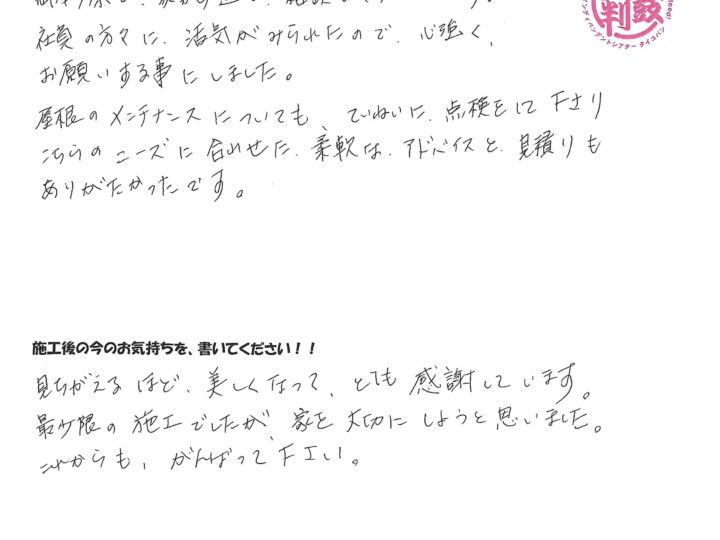 社員の方々に、活気がみられたので、心強く、
お願いする事にしました。
屋根のメンテナンスについても、ていねいに、点検をして下さり
こちらのニーズに合わせた、柔軟な、アドバイスと、見積りも
ありがたかったです。
施工後の今のお気持ちを、書いてください！！
見ちがえるほど、美しくなって、とても感謝しています。
最少限の施工でしたが、家を大切にしようと思いました。
これからも、がんばって下工い。